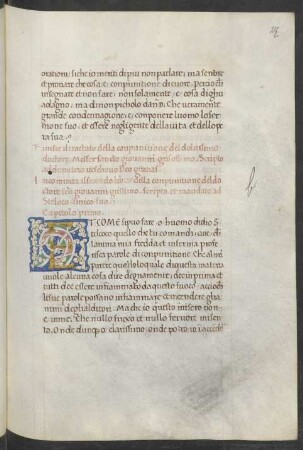 orationi: si che io meriti de piu non parlare; ma sentire
et provare che cosa e conpunctione di cuore. Pero chi
insegnare et non fare; non solamente e cosa di ghu
adagno, ma di non picholo danno. Che veramente
grande condemnagione e; componere luomo lo ser
mone suo, et essere negligente della vita et dellope
ra sua.
Finisce il tractato della conpunctione del dolcissimo
doctore Messer sancto giovanni grisostimo. Scripto
a demetrio vescovo Deo gratias.
Incomincia il secondo libro della conpunctione del do
ctore san giovanni grisostimo. scripto et mandato ad
Stelechio amico suo.
Capitolo primo.
ET COME e possibile o huomo didio S
telechio quello che tu comandi: che di
lanima mia fredda et inferma profe
risca parole di conpunctione. Che a mi
parere quelli lo quale di questa materia
vuole alcuna cosa dire degnamente; de in prima et
tutti dee essere infiammato da questo fuoco: accio che
le sue parole possano infiammare et accendere gli a
nimi degli alditori. Ma che io questo in sero non
e in me; Che nullo fuoco et nullo fervore in se
to. Onde dunque o carissimo, onde potro io accende